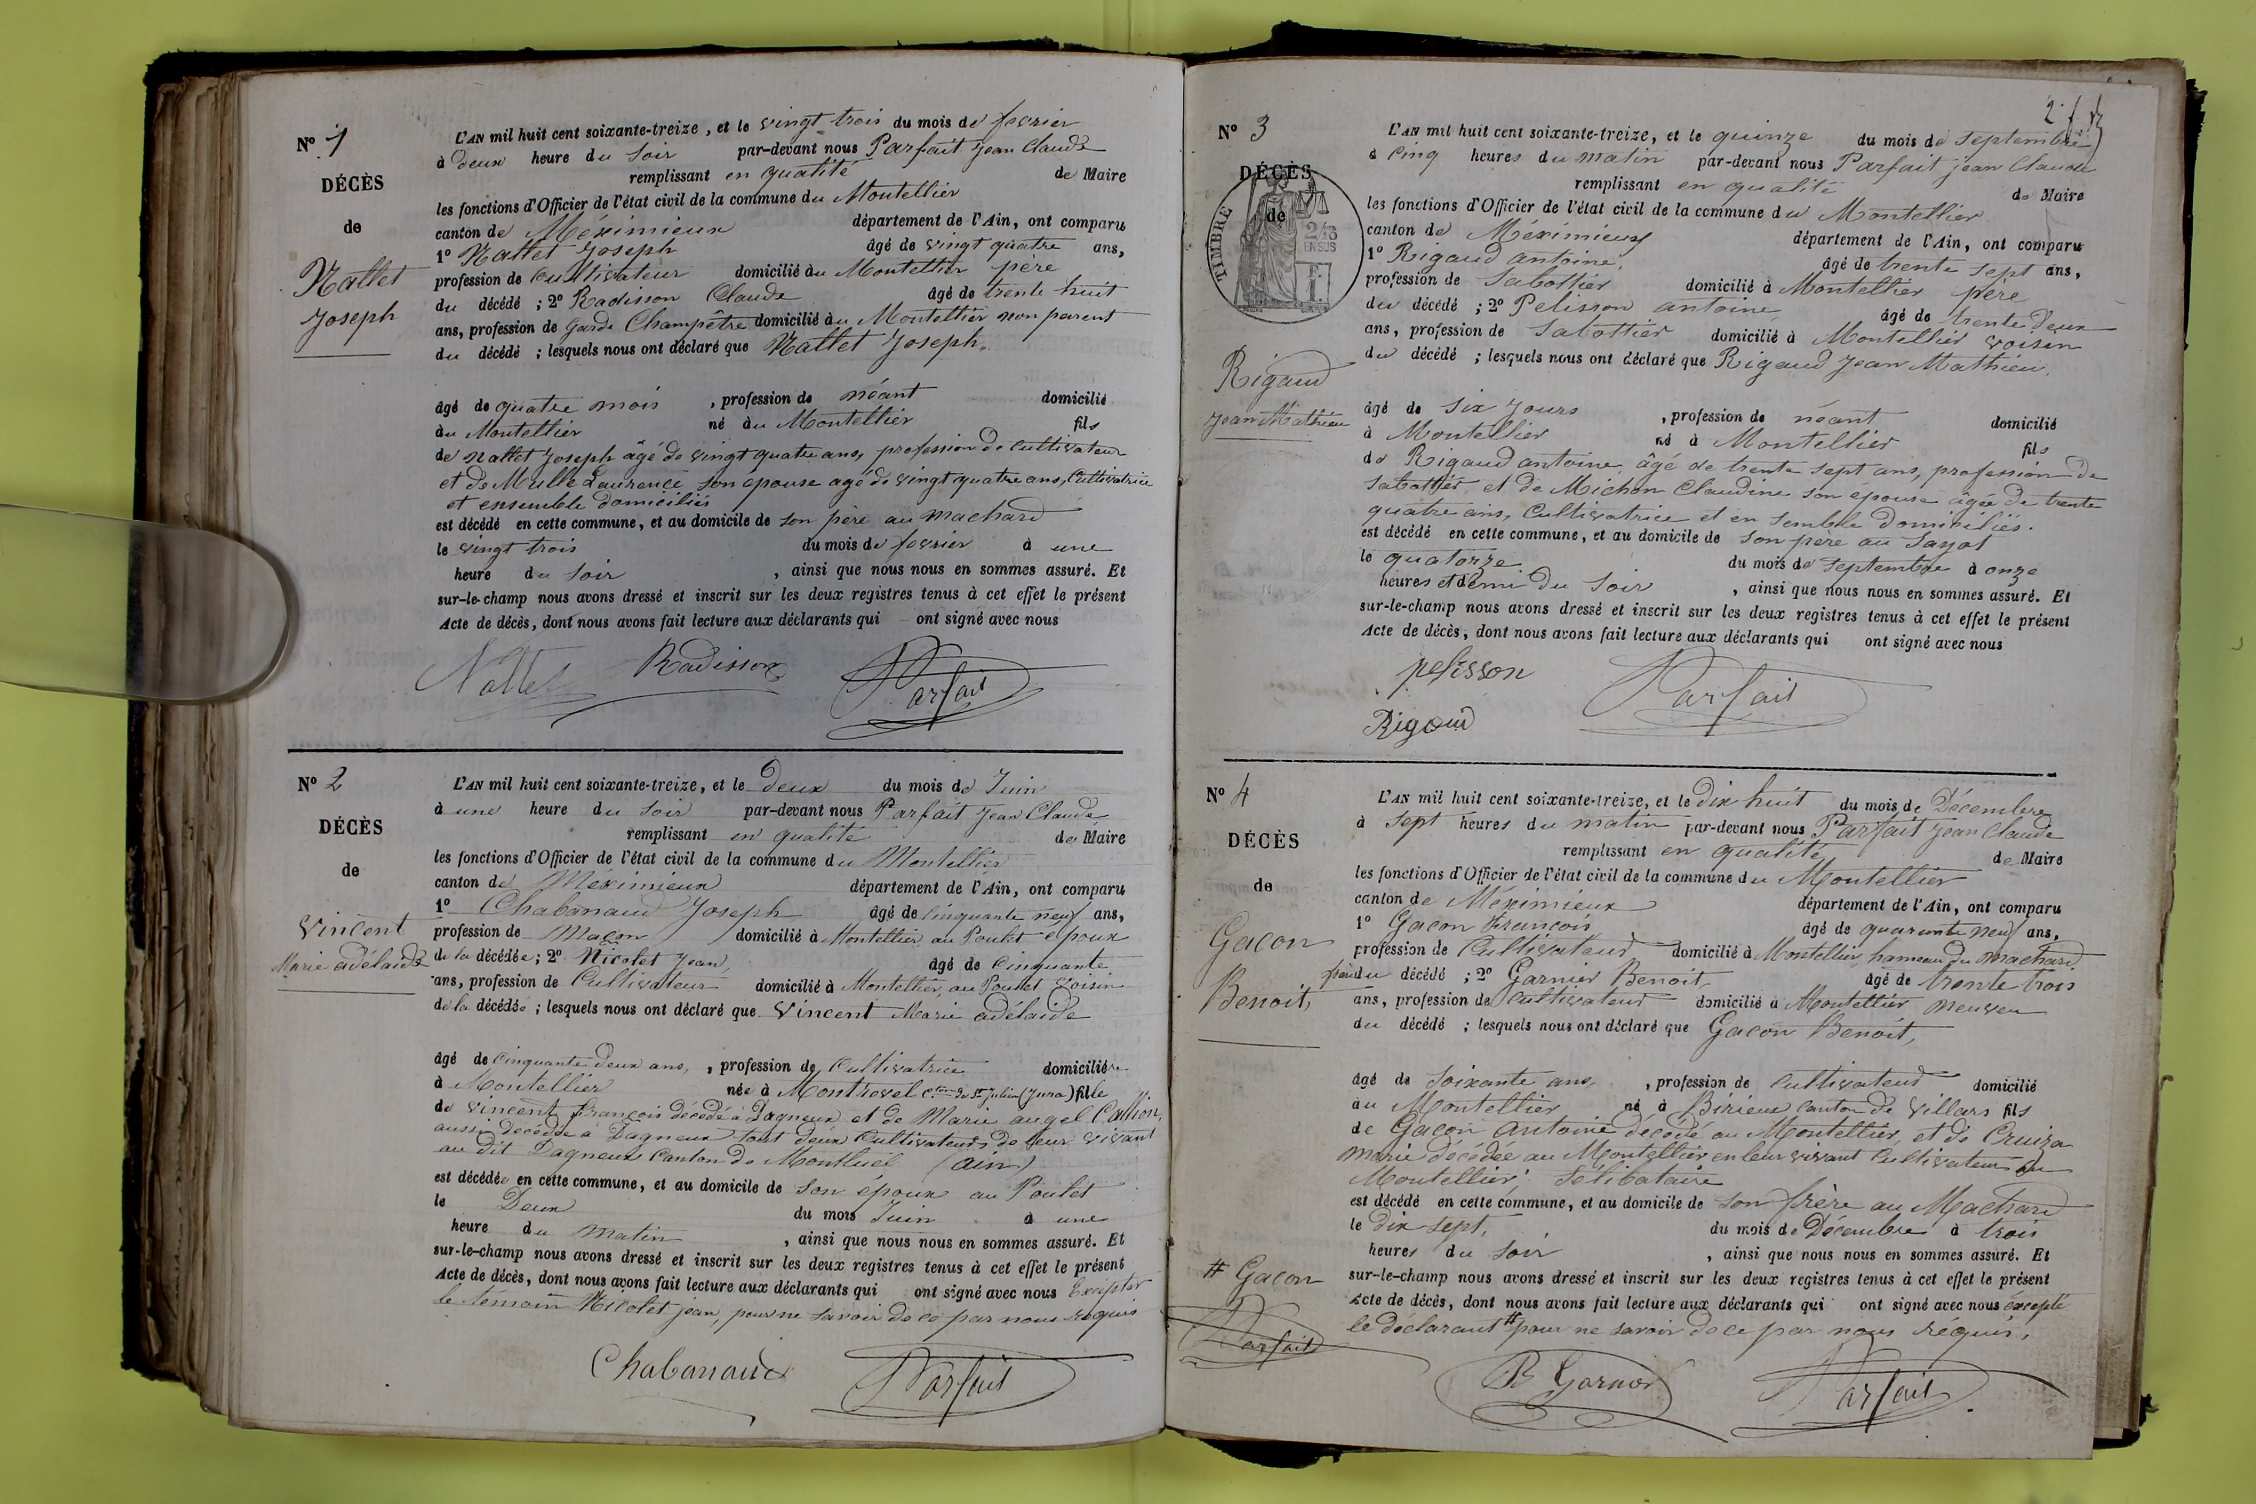 N° 1
DÉCÈS
de
Nallet
Joseph
L'AN mil huit cent soixante-treize, et le vingt trois du mois de fevrier
à deux heure du soir par-devant nous Parfait Jean Claude
remplissant en qualité de Maire
les fonctions d'Officier de l'état civil de la commune du Montellier
canton de Méximieux département de l'Ain, ont comparu
1° Nallet Joseph âgé de vingt quatre ans,
profession de cultivateur domicilié au Montellier père
du décédé ; 2° Radisson Claude âgé de trente huit
ans, profession de garde Champêtre domicilié au Montellier non parent
du décédé ; lesquels nous ont déclaré que Nallet Joseph.
âgé de quatre mois , profession de néant domicilié
au Montellier né au Montellier fils
de Nallet Joseph âgé de vingt quatre ans, profession de cultivateur
et de Mulle Laurence son epouse agé de vingt quatre ans, Cultivatrice
et ensemble domiciliés
est décédé en cette commune, et au domicile de son père au machard
le vingt trois du mois de fevrier à une
heure du soir , ainsi que nous nous en sommes assuré. Et
sur-le-champ nous avons dressé et inscrit sur les deux registres tenus à cet effet le présent
Acte de décès, dont nous avons fait lecture aux déclarants qui ont signé avec nous
Nallet Radisson Parfait
N° 2
DÉCÈS
de
Vincent
Marie adélaide
L'AN mil huit cent soixante-treize, et le deux du mois de Juin
à une heure du soir par-devant nous Parfait Jean Claude
remplissant en qualité de Maire
les fonctions d'Officier de l'état civil de la commune du Montellier
canton de Méximieux département de l'Ain, ont comparu
1° Chabanaud Joseph âgé de cinquante neuf ans,
profession de Maçon domicilié à Montellier au Poulet époux
de la décédée ; 2° Nicolet Jean, âgé de Cinquante
ans, profession de Cultivateur domicilié à Montellier, au Poulet voisin
de la décédée ; lesquels nous ont déclaré que Vincent Marie adélaide
âgé de cinquante deux ans, , profession de Cultivatrice domiciliée
à Montellier née à Montrevel cton de St Julien (Jura) fille
de Vincent françois décédé à Dagneux et de Marie angel Callion,
aussi décédée à Dagneux tout deux Cultivateurs de leur vivant
au dit Dagneux Canton de Montluel (ain)
est décédée en cette commune, et au domicile de son époux au Poulet
le Deux du mois Juin à une
heure du matin , ainsi que nous nous en sommes assuré. Et
sur-le-champ nous avons dressé et inscrit sur les deux registres tenus à cet effet le présent
Acte de décès, dont nous avons fait lecture aux déclarants qui ont signé avec nous Excepter
le témoin Nicolet jean, pour ne savoir de ce par nous réquis
Chabanaud Parfait
N° 3
DÉCÈS
de
TIMBRE
Rigaud
Jean Mathieu
L'AN mil huit cent soixante-treize, et le quinze du mois de septembre
à cinq heures du matin par-devant nous Parfait Jean Claude
remplissant en qualité de Maire
les fonctions d'Officier de l'état civil de la commune du Montellier
canton de Méximieux département de l'Ain, ont comparu
1° Rigaud antoine, âgé de trente sept ans,
profession de Sabottier domicilié à Montellier père
du décédé ; 2° Pelisson antoine âgé de trente deux
ans, profession de Sabottier domicilié à Montellier voisin
du décédé ; lesquels nous ont déclaré que Rigaud Jean Mathieu.
âgé de six jours , profession de néant domicilié
à Montellier né à Montellier fils
de Rigaud antoine âgé de trente sept ans, profession de
sabottier et de Michon Claudine son épouse âgée de trente
quatre ans, Cultivatrice et en semble domiciliés.
est décédé en cette commune, et au domicile de son père au Sayot
le quatorze du mois de septembre à onze
heures et demi du soir , ainsi que nous nous en sommes assuré. Et
sur-le-champ nous avons dressé et inscrit sur les deux registres tenus à cet effet le présent
Acte de décès, dont nous avons fait lecture aux déclarants qui ont signé avec nous
pelisson Parfait
Rigaud
N° 4
DÉCÈS
de
Gacon
Benoit,
L'AN mil huit cent soixante-treize, et le dix huit du mois de Décembre
à sept heures du matin par-devant nous Parfait Jean Claude
remplissant en qualité de Maire
les fonctions d'Officier de l'état civil de la commune du Montellier
canton de Méximieux département de l'Ain, ont comparu
1° Gacon François âgé de quarante neuf ans,
profession de Cultivateur domicilié à Montellier, hameau du machard
frère du décédé ; 2° Garnier Benoit, âgé de trente trois
ans, profession de cultivateur domicilié à Montellier neuveu
du décédé ; lesquels nous ont déclaré que Gacon Benoit,
âgé de soixante ans, , profession de cultivateur domicilié
au Montellier né à Birieux canton de Villars fils
de Gacon antoine décédé au Montellier, et de Cruiza
marie décédée au Montellier en leur vivant Cultivateurs au
Montellier. Sélibataire
est décédé en cette commune, et au domicile de son frère au Machard
le dix sept, du mois de Décembre à trois
heures du soir , ainsi que nous nous en sommes assuré. Et
sur-le-champ nous avons dressé et inscrit sur les deux registres tenus à cet effet le présent
Acte de décès, dont nous avons fait lecture aux déclarants qui ont signé avec nous éxcepté
le déclarant # pour ne savoir de ce par nous réquis,
# Gacon
Parfait
B Garnier Parfait